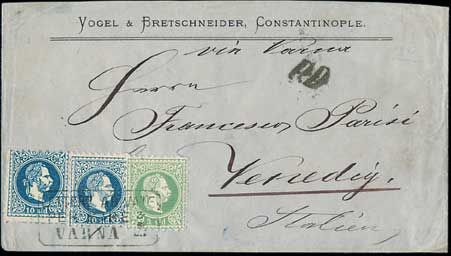 VOGEL & BRETSCHNEIDER, CONSTANTINOPLE.
via Varna
P.D.
Herrn
Francesco Parisi
Venedig
Italien
10 10
VARNA